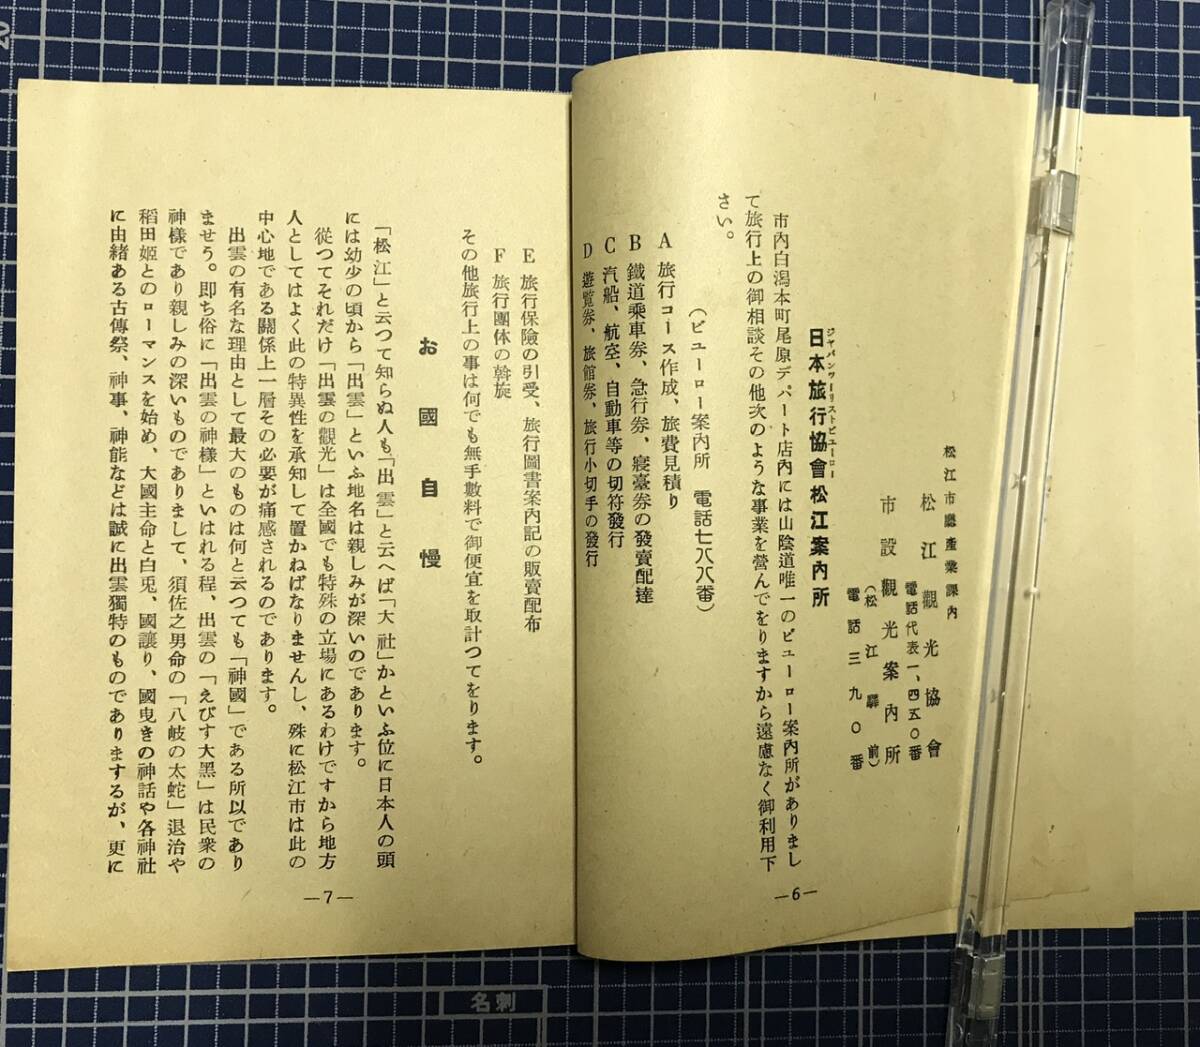 松江市廳產業課內
松江觀光協會
電話代表一、四五〇番
市設觀光案內所
(松江驛前)
電話三九〇番
ジヤパンツーリストビユーロー
日本旅行協會松江案內所
市內白潟本町尾原デパート店內には山陰道唯一のビユーロー案內所がありまし
て旅行上の御相談その他次のような事業を營んでをりますから遠慮なく御利用下
さい。
(ビユーロー案內所 電話七八八番)
A 旅行コース作成、旅費見積り
B 鐵道乘車券、急行券、寢臺券の發賣配達
C 汽船、航空、自動車等の切符發行
D 遊覽券、旅館券、旅行小切手の發行
—6—
E 旅行保險の引受、旅行圖書案內記の販賣配布
F 旅行團体の斡旋
その他旅行上の事は何でも無手數料で御便宜を取計つてをります。
お國自慢
「松江」と云つて知らぬ人も「出雲」と云へば「大社」かといふ位に日本人の頭
には幼少の頃から「出雲」といふ地名は親しみが深いのであります。
從つてそれだけ「出雲の觀光」は全國でも特殊の立場にあるわけですから地方
人としてはよく此の特異性を承知して置かねばなりませんし、殊に松江市は此の
中心地である關係上一層その必要が痛感されるのであります。
出雲の有名な理由として最大のものは何と云つても「神國」である所以であり
ませう。即ち俗に「出雲の神樣」といはれる程、出雲の「えびす大黑」は民衆の
神樣であり親しみの深いものでありまして、須佐之男命の「八岐の太蛇」退治や
稻田姬とのローマンスを始め、大國主命と白兎、國讓り、國曳きの神話や各神社
に由緖ある古傳祭、神事、神能などは誠に出雲獨特のものでありまするが、更に
—7—
名刺